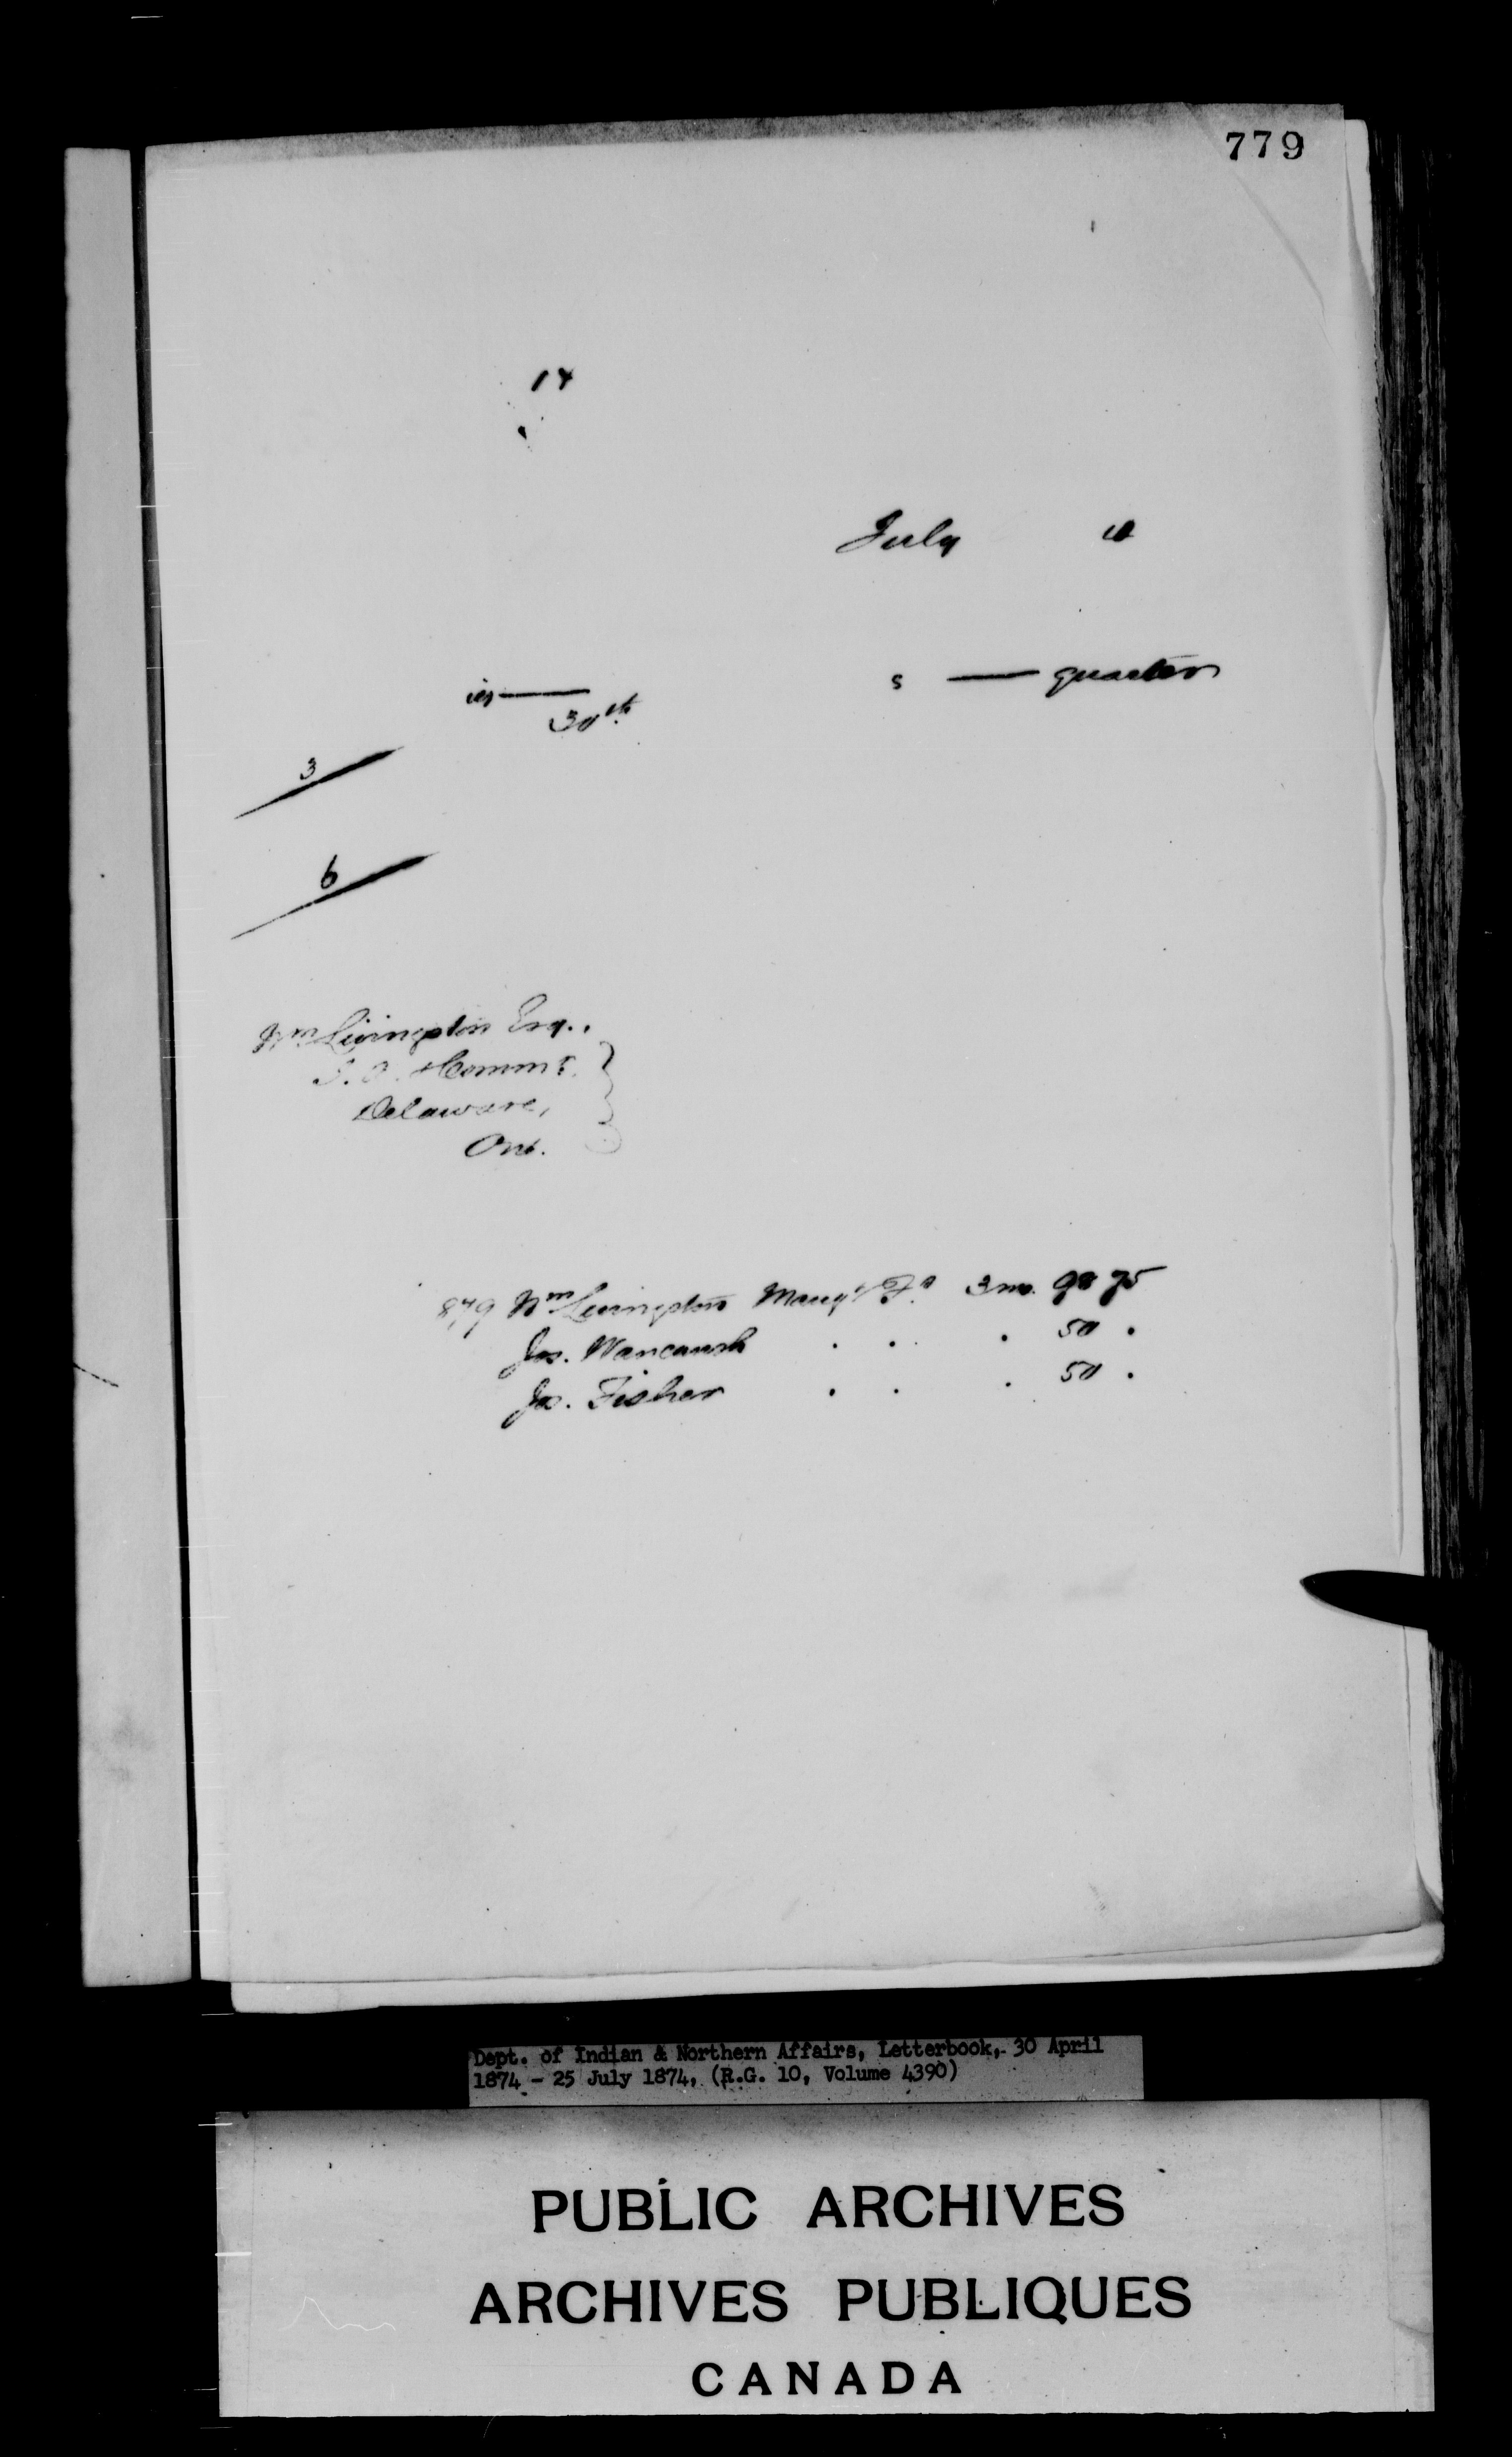 779
14
July 10
ies — s — quarter
30th
3
6
Wm Livingston Esq.,
I. A. & Commr.
Delaware,
Ont.
879 Wm Livingston Mangt Fd 3 mo. 98 75
Jos. Wancaush . . . 50 .
Jos. Fisher . . . 50 .
Dept. of Indian & Northern Affairs, Letterbook, 30 April
1874 - 25 July 1874, (R.G. 10, Volume 4390)
PUBLIC ARCHIVES
ARCHIVES PUBLIQUES
CANADA